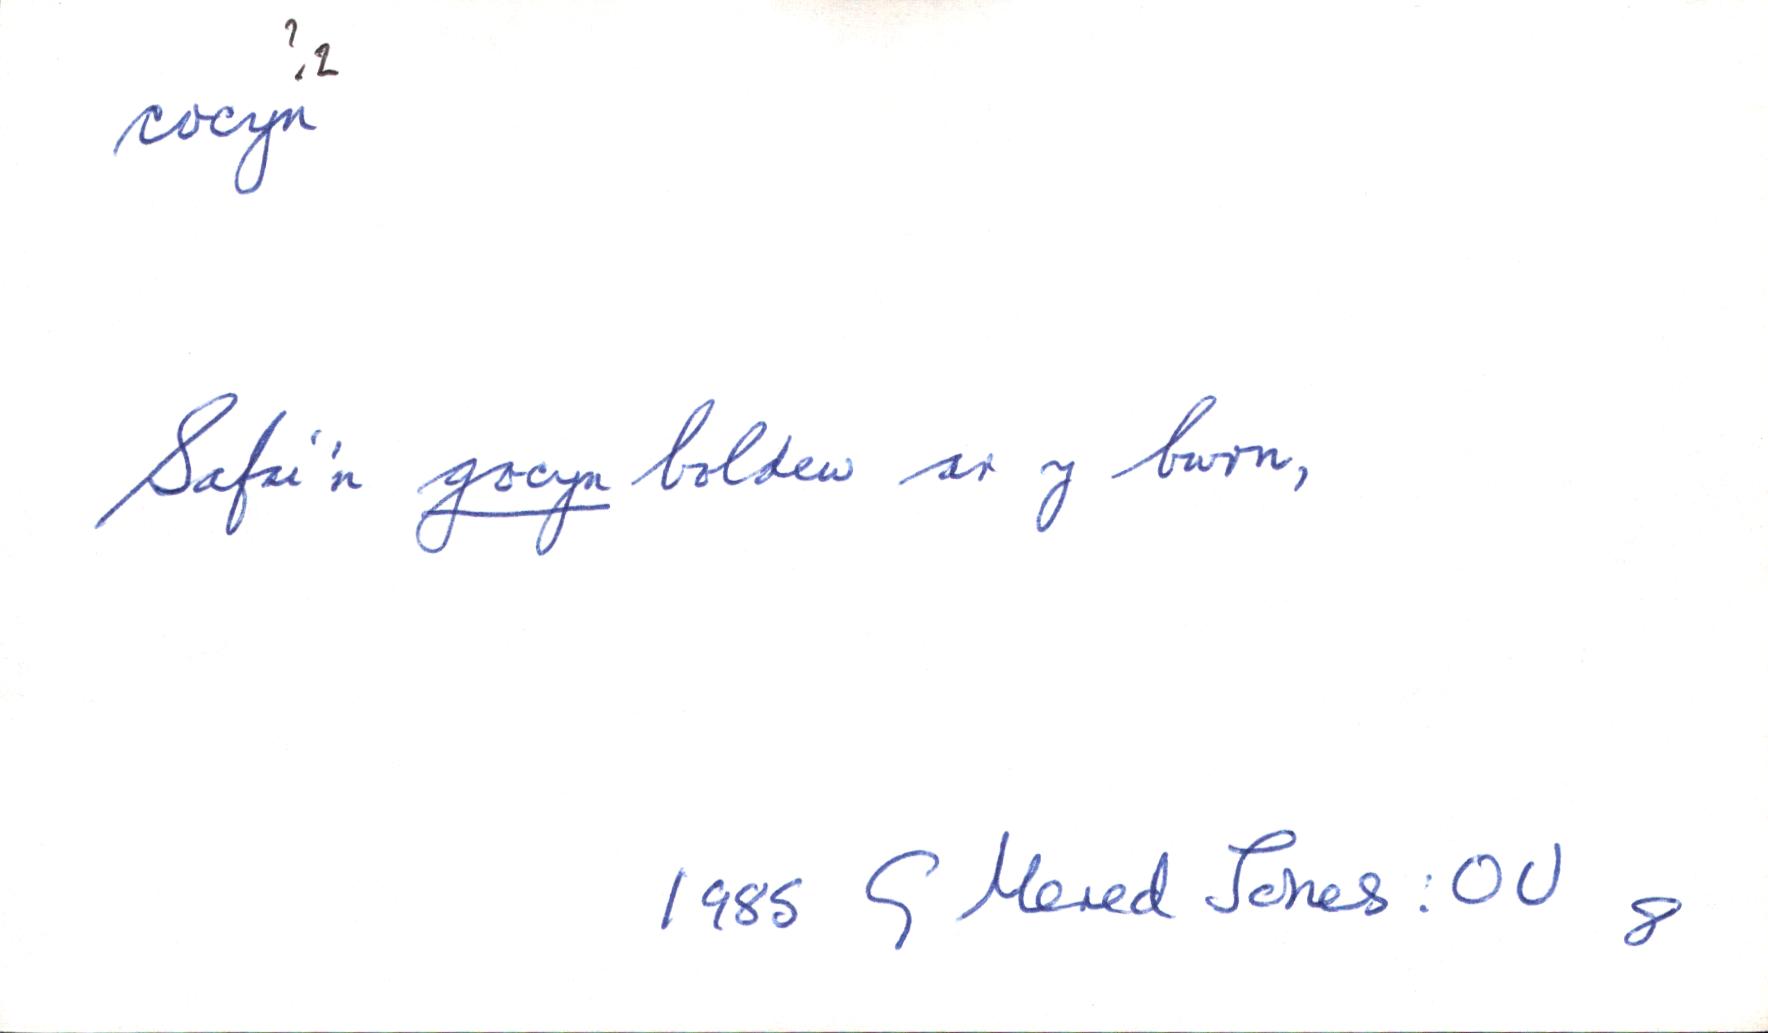 ? .2
cocyn
Safai'n gocyn boldew ar y bwrn,
1985 G Mered Jones: OU 8